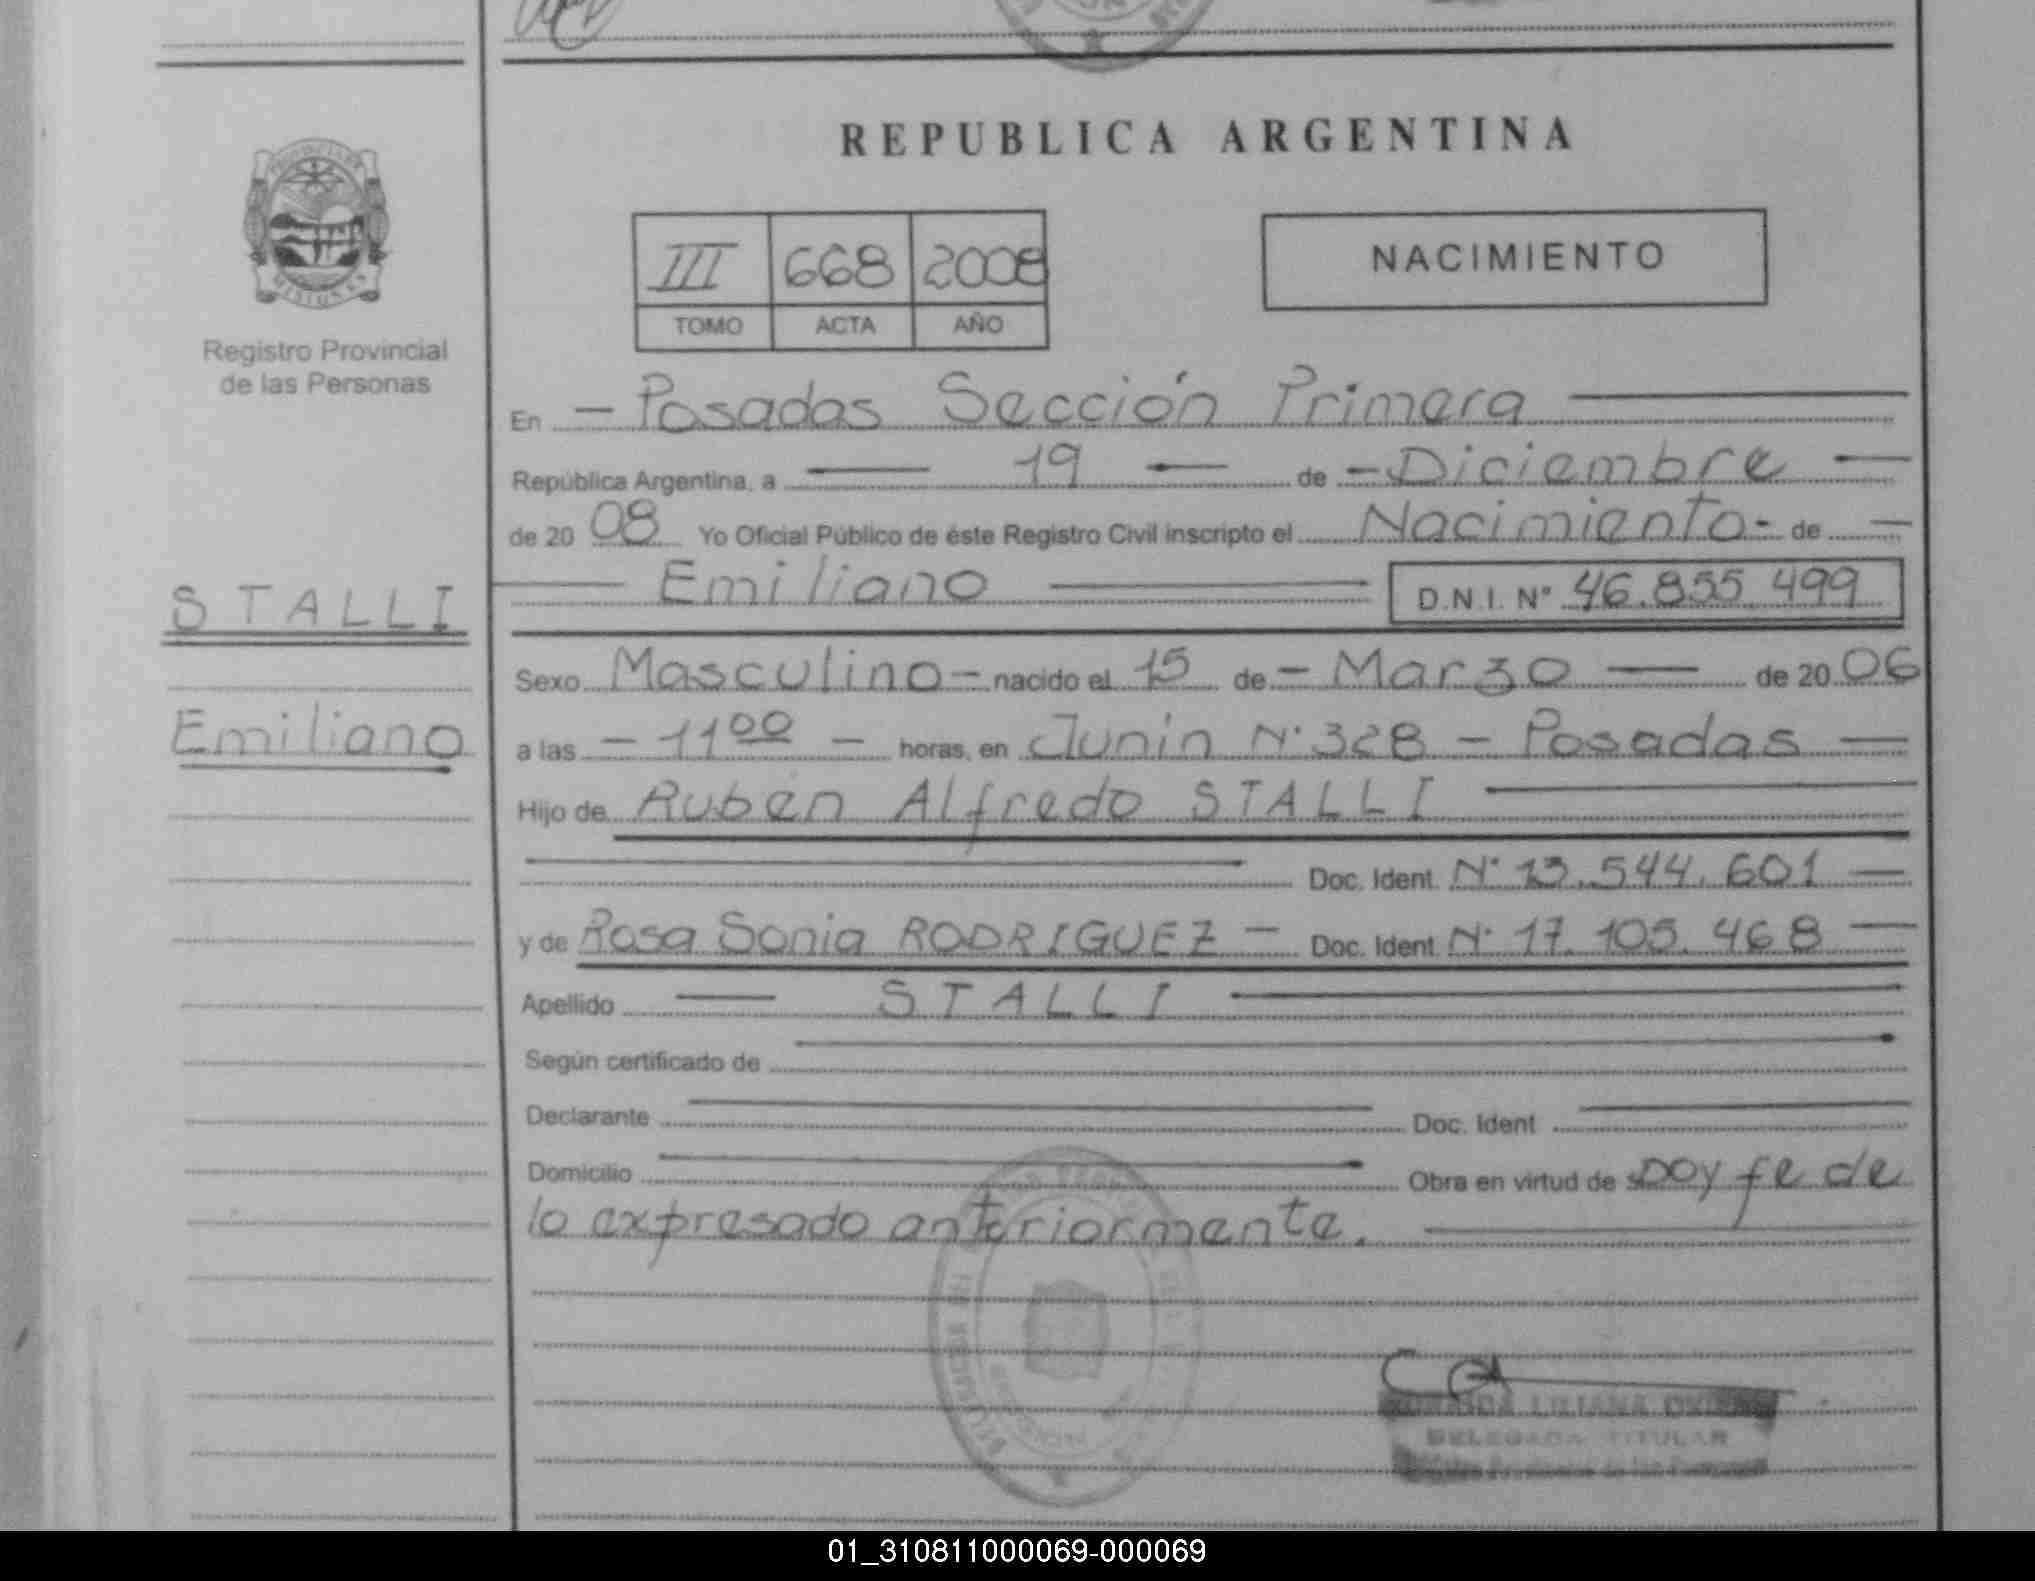 REPUBLICA ARGENTINA
PROVINCIA DE
MISIONES
Registro Provincial
de las Personas
III 668 2008
TOMO ACTA AÑO
NACIMIENTO
En - Posadas Sección Primera
República Argentina, a 19 de - Diciembre
de 20 08 Yo Oficial Público de éste Registro Civil inscripto el Nacimiento - de
Emiliano D.N.I. N° 46.855.499
STALLI
Emiliano
Sexo Masculino - nacido el 15 de - Marzo de 20 06
a las - 11 00 - horas, en Junín N° 328 - Posadas
Hijo de Ruben Alfredo STALLI
Doc. Ident. N° 13.544.601
y de Rosa Sonia RODRIGUEZ - Doc. Ident. N° 17.105.468
Apellido STALLI
Según certificado de
Declarante Doc. Ident
Domicilio Obra en virtud de DOY fe de
lo expresado anteriormente.
LILIANA
DELEGADA TITULAR
01_310811000069-000069